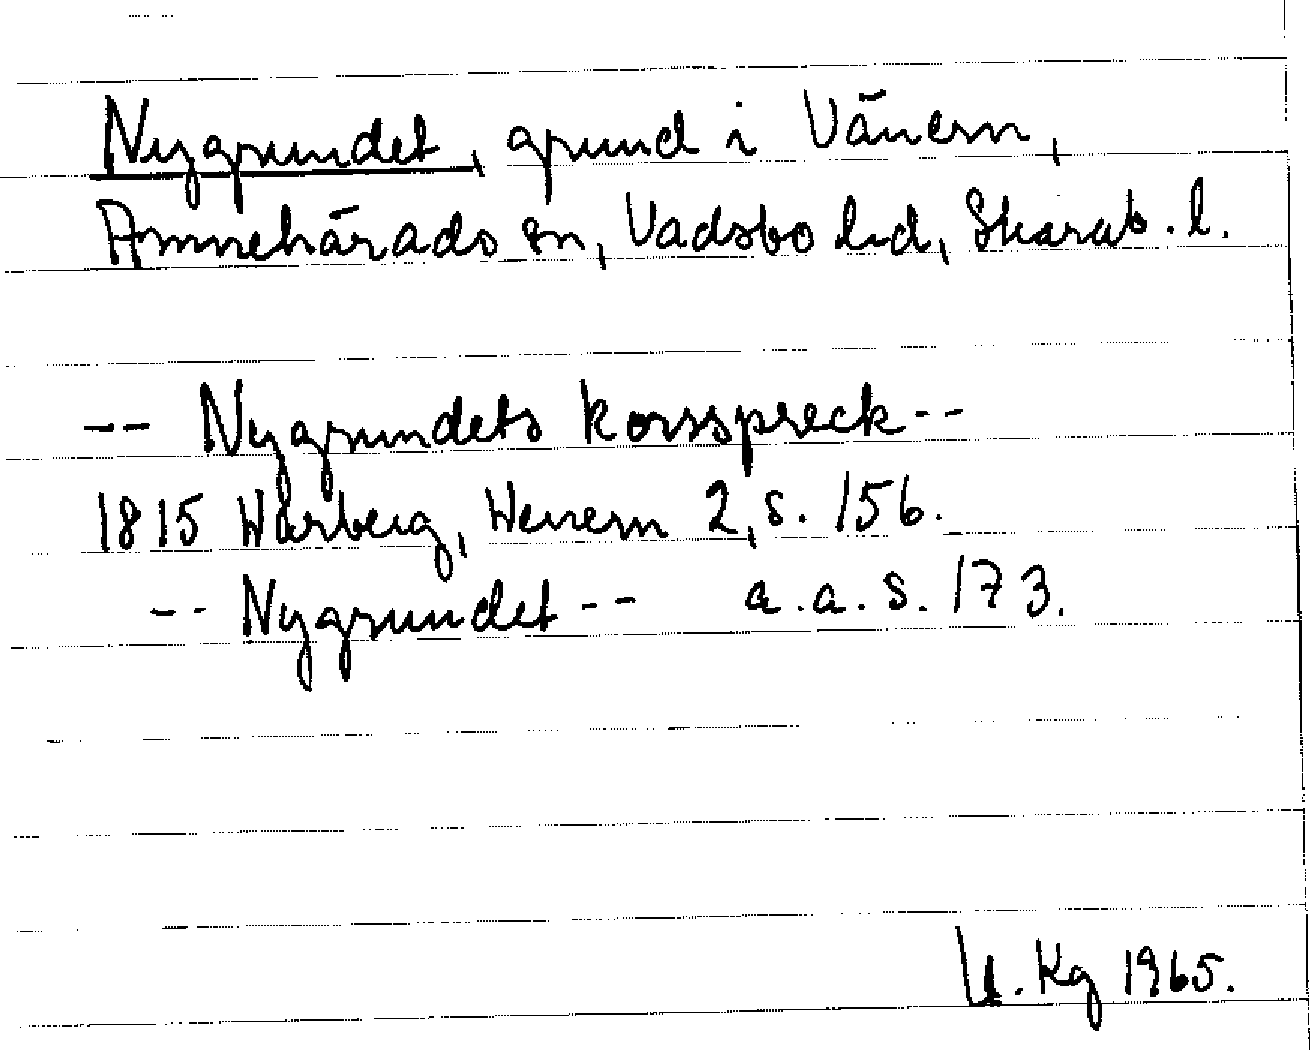 Nygrundet, grund i Vänern,
Amnehärads sn, Vadsbo hd, Skarab. l.
-- Nygrundets korsspreck --
1815 Warberg, Wenern 2, s. 156.
-- Nygrundet -- a.a.s. 173.
U. Kg 1965.